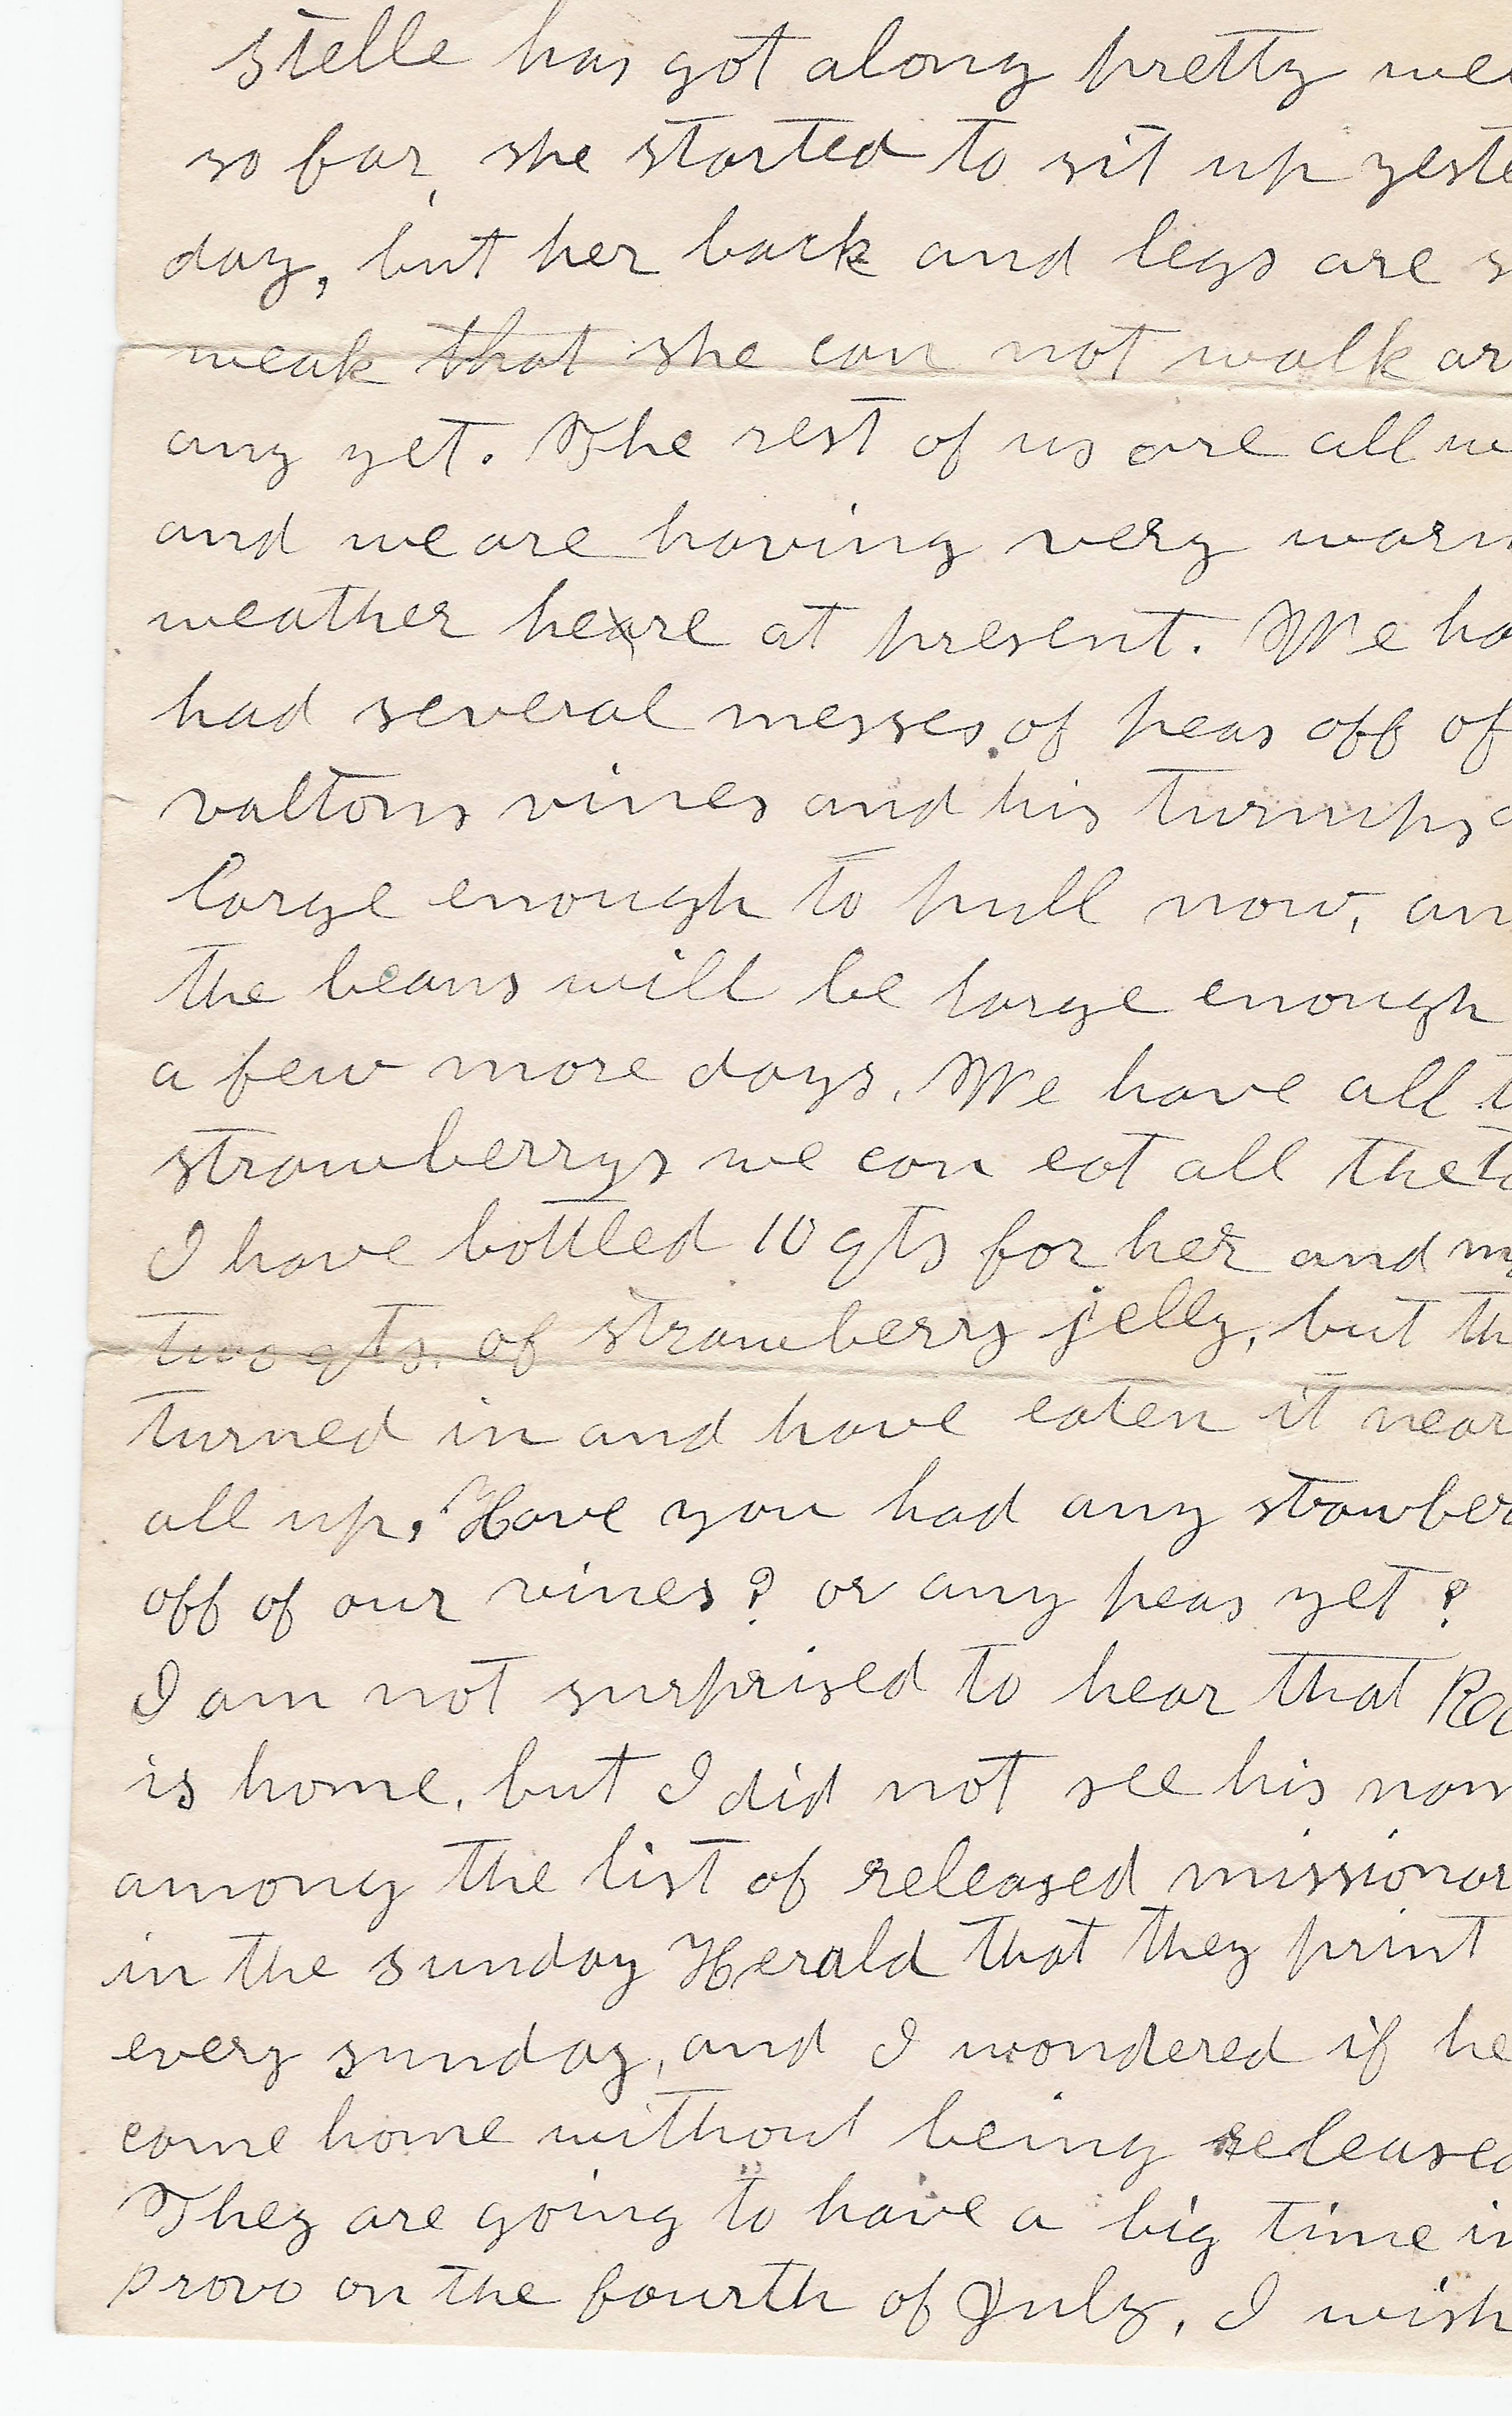 stelle has got along pretty we
so far, she started to sit up yeste
day, but her back and legs are s
weak that she can not walk ar
any yet. The rest of us are all w
and we are having very warm
weather here at present. We ha
had several messes of peas off of
valtons vines and his turnips a
large enough to pull now, an
the beans will be large enough
a few more days. We have all t
strawberrys we can eat all the t
I have bottled 10 qts for her and my
two qts. of strawberry jelly, but th
turned in and have eaten it near
all up. Have you had any strawber
off of our vines? or any peas yet?
I am not surprised to hear that
is home, but I did not see his nam
among the list of released missionar
in the sunday Herald that they print
every sunday, and I wondered if he
come home without being released
They are going to have a big time in
provo on the fourth of July, I wish